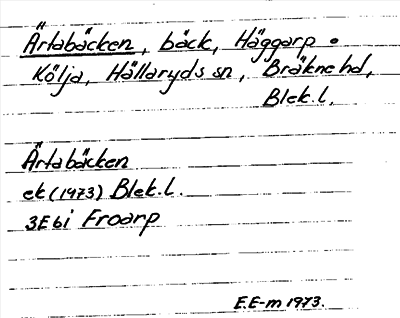 Ärtabäcken, bäck, Häggarp o
Kölja, Hällaryds sn, Bräkne hd,
Blek.l.
Ärtabäcken
ek (1973) Blek.l.
3E6i Froarp
E.E-m 1973.